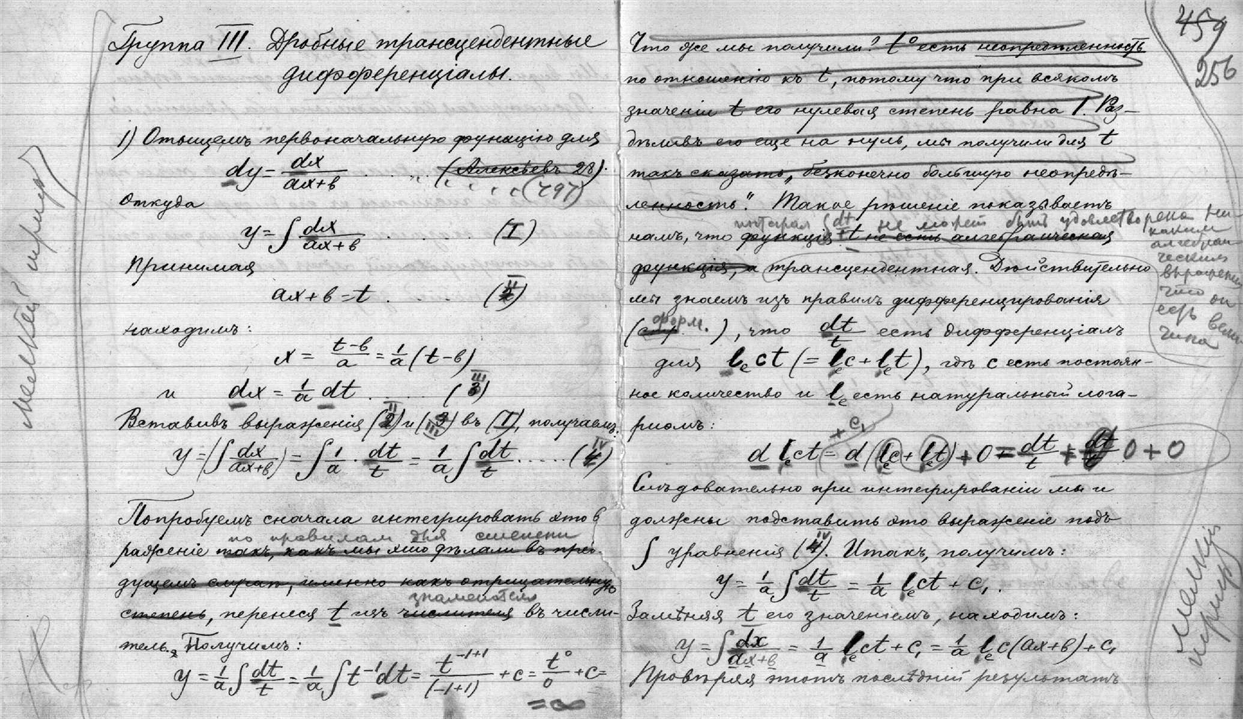 Группа III. Дробные трансцендентные
дифференціалы.
1) Отыщемъ первоначальную функцію для
dy = dx/(ax+b) (Алексѣевъ 28).
" " " " " (497)
Откуда
y = ∫ dx/(ax+b) ..... (I)
Принимая
ax+b = t . ..... (II)
находимъ:
x = (t-b)/a = 1/a (t-b)
и dx = 1/a dt ...... (III)
Вставивъ выраженія (II) и (III) въ (I), получаемъ.
y = (∫ dx/(ax+b)) = ∫ 1/a · dt/t = 1/a ∫ dt/t ..... (IV)
Попробуемъ сначала интегрировать это в
по правиламъ для степени
раженіе такъ, какъ мы это дѣлали въ пре-
дущемъ случаѣ, именно какъ отрицательную
знаменателя
степень, перенеся t изъ числителя въ числи-
тель. Получимъ:
y = 1/a ∫ dt/t = 1/a ∫ t⁻¹ dt = t⁻¹⁺¹/(-1+1) + c = t⁰/0 + c =
= ∞
459
256
Что же мы получили? t⁰ есть неопредѣленность
по отношенію къ t, потому что при всякомъ
значеніи t его нулевая степень равна 1. Раз-
дѣливъ его еще на нуль, мы получили для t
такъ сказать, "безконечно большую неопредѣ-
ленность". Такое рѣшеніе показываетъ
интеграл ∫ dt/t не может быть удовлетворена ни-
каким
алгебраи-
ческим
выражением
что он
есть вели-
чина
намъ, что функція t не есть алгебраическая
функція, а трансцендентная. Дѣйствительно
мы знаемъ изъ правилъ дифференцированія
(форм. ), что dt/t есть дифференціалъ
для lₑct (= lₑc + lₑt), гдѣ c есть постоян-
ное количество и lₑ есть натуральный лога-
риөмъ:
+ c₁
d lₑct = d(lₑc + lₑt) + 0 = dt/t + 0 + 0
Слѣдовательно при интегрированіи мы и
должны подставить это выраженіе подъ
∫ уравненія (IV). Итакъ, получимъ:
y = 1/a ∫ dt/t = 1/a lₑct + c₁.
Замѣняя t его значеніемъ, находимъ:
y = ∫ dx/(ax+b) = 1/a lₑct + c₁ = 1/a lₑc(ax+b) + c₁
Провѣряя этотъ послѣдній результатъ